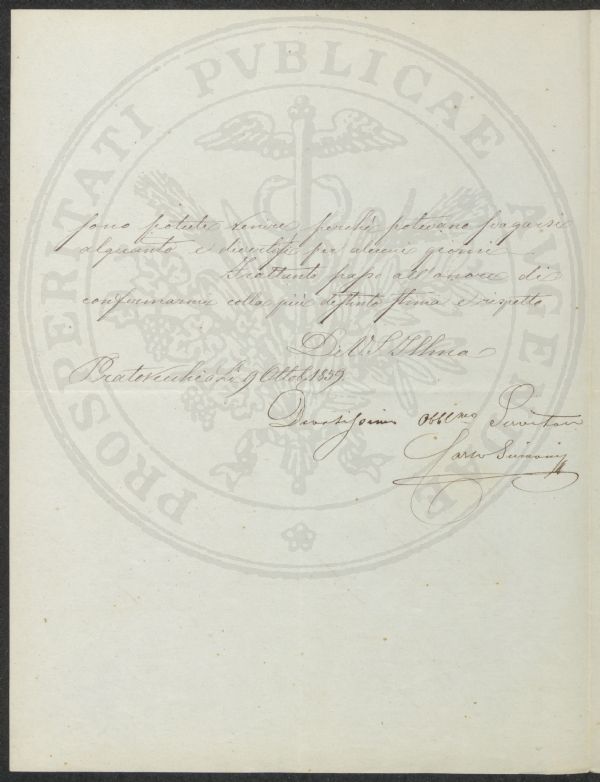 PROSPERITATI PVBLICAE AVGENDAE
sono potute venire perchè potevano svagarsi
alquanto e divertirsi per alcuni giorni
Frattanto passo all'onore di
confermarmi colla più distinta stima e rispetto
Di V. S. Illma
Pratovecchio Li 9 Ottob. 1859
Devotissimo Obblmo Servitore
Carlo